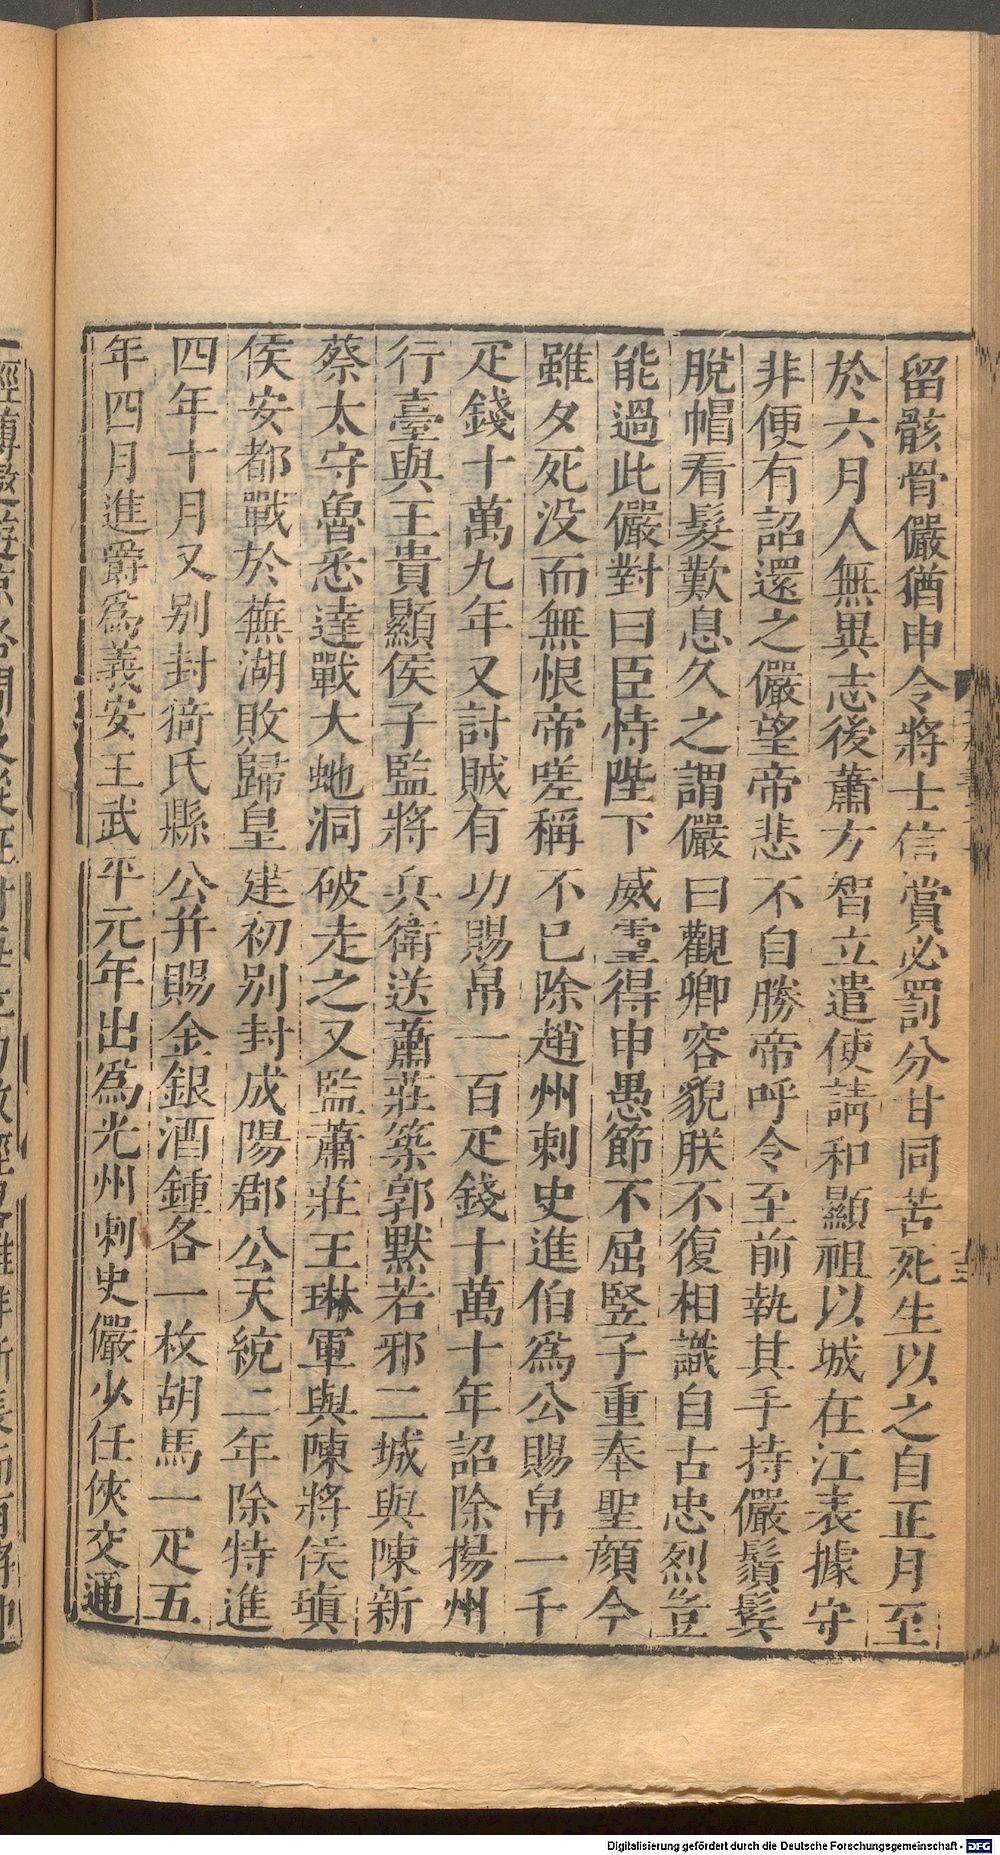 留骸骨儼猶申令將士信賞必罰分甘同苦死生以之自正月至
於六月人無異志後蕭方智立遣使請和顯祖以城在江表據守
非便有詔還之儼望帝悲不自勝帝呼令至前執其手持儼鬚鬢
脫帽看髮歎息久之謂儼曰觀卿容貌朕不復相識自古忠烈豈
能過此儼對曰臣恃陛下威靈得申愚節不屈竪子重奉聖顔今
雖夕死没而無恨帝嗟稱不已除趙州刺史進伯爲公賜帛一千
疋錢十萬九年又討賊有功賜帛一百疋錢十萬十年詔除揚州
行臺與王貴顯侯子監將兵衛送蕭莊築郭默若邪二城與陳新
蔡太守魯悉達戰大虵洞破走之又監蕭莊王琳軍與陳將侯瑱
侯安都戰於蕪湖敗歸皇建初别封成陽郡公天統二年除特進
四年十月又别封猗氏縣公并賜金銀酒鍾各一枚胡馬一疋五
年四月進爵爲義安王武平元年出爲光州刺史儼少任俠交通
Digitalisierung gefördert durch die Deutsche Forschungsgemeinschaft - DFG